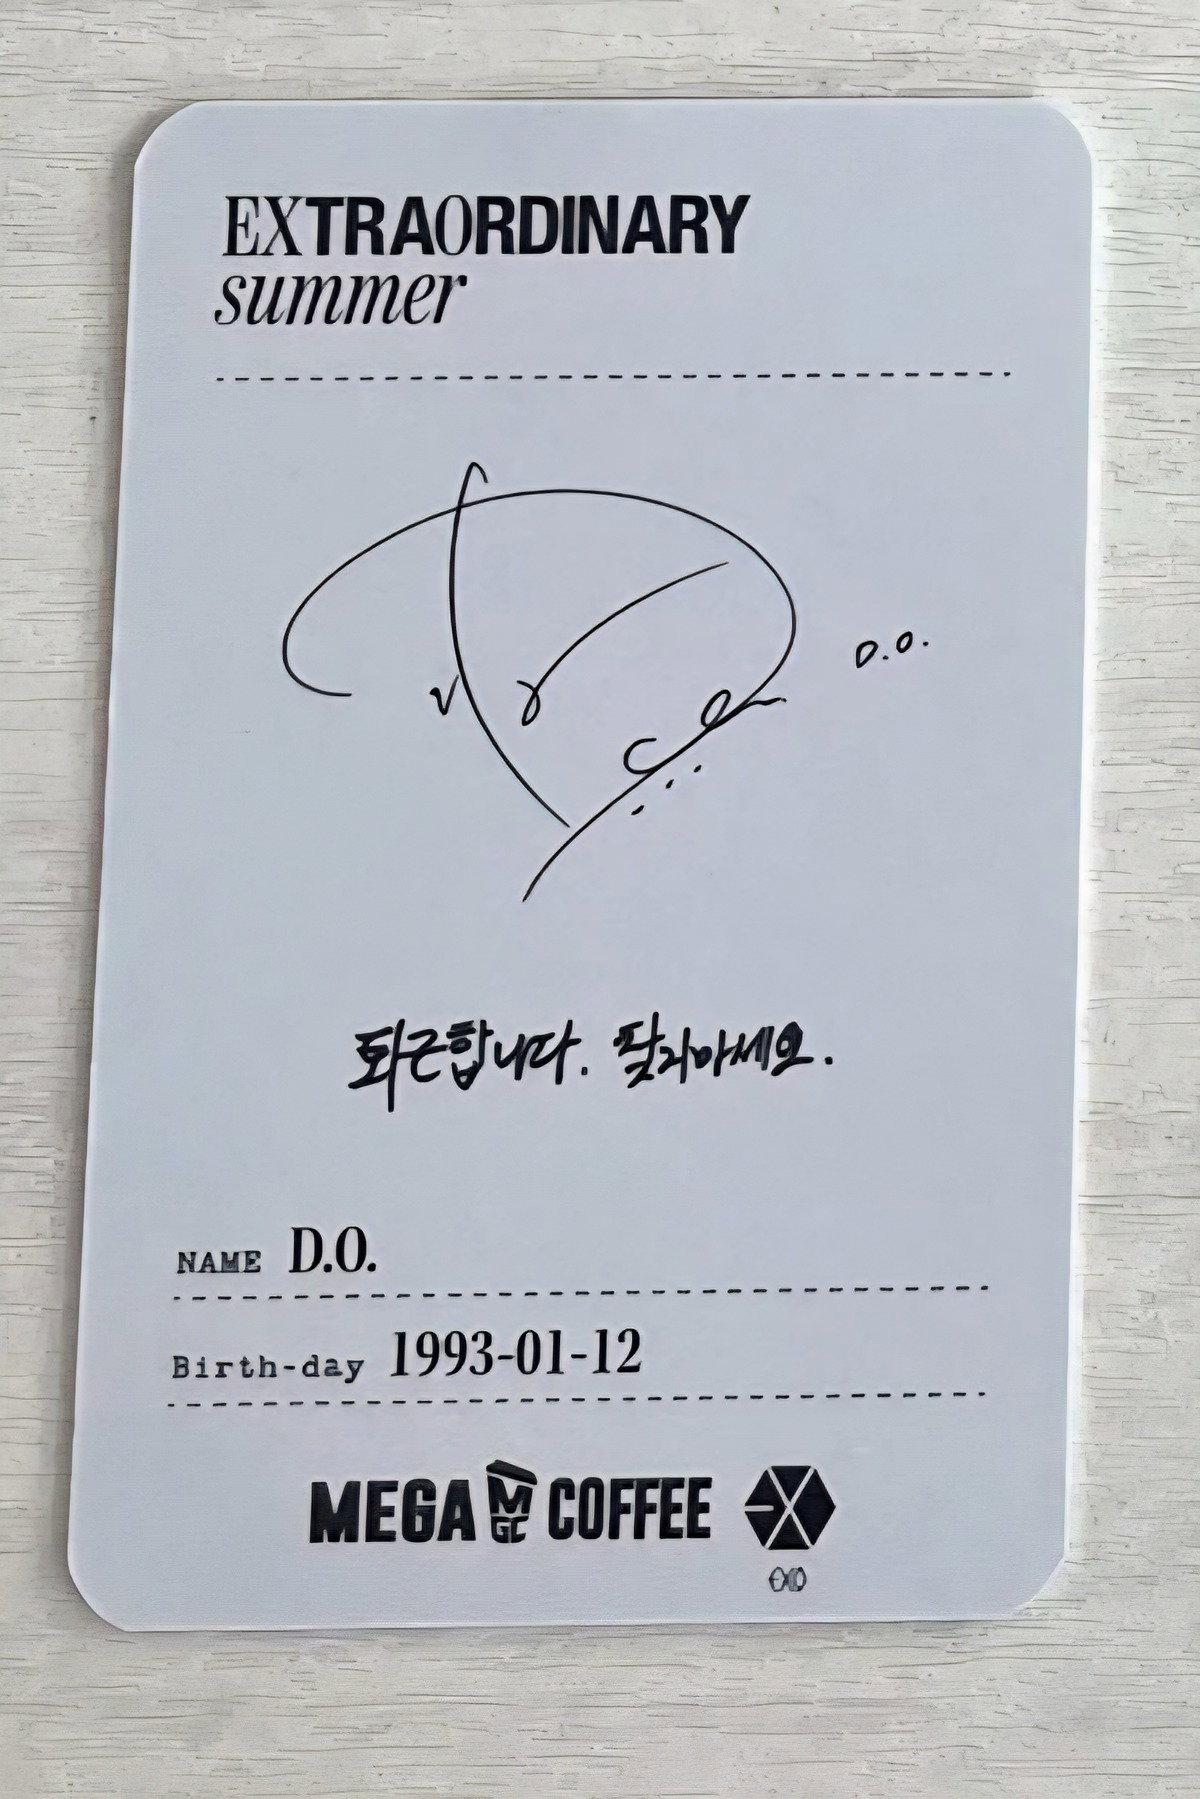 EXTRAORDINARY
summer
D.O.
퇴근합니다. 찾지마세요.
NAME D.O.
Birth-day 1993-01-12
MEGA MGC COFFEE EXO